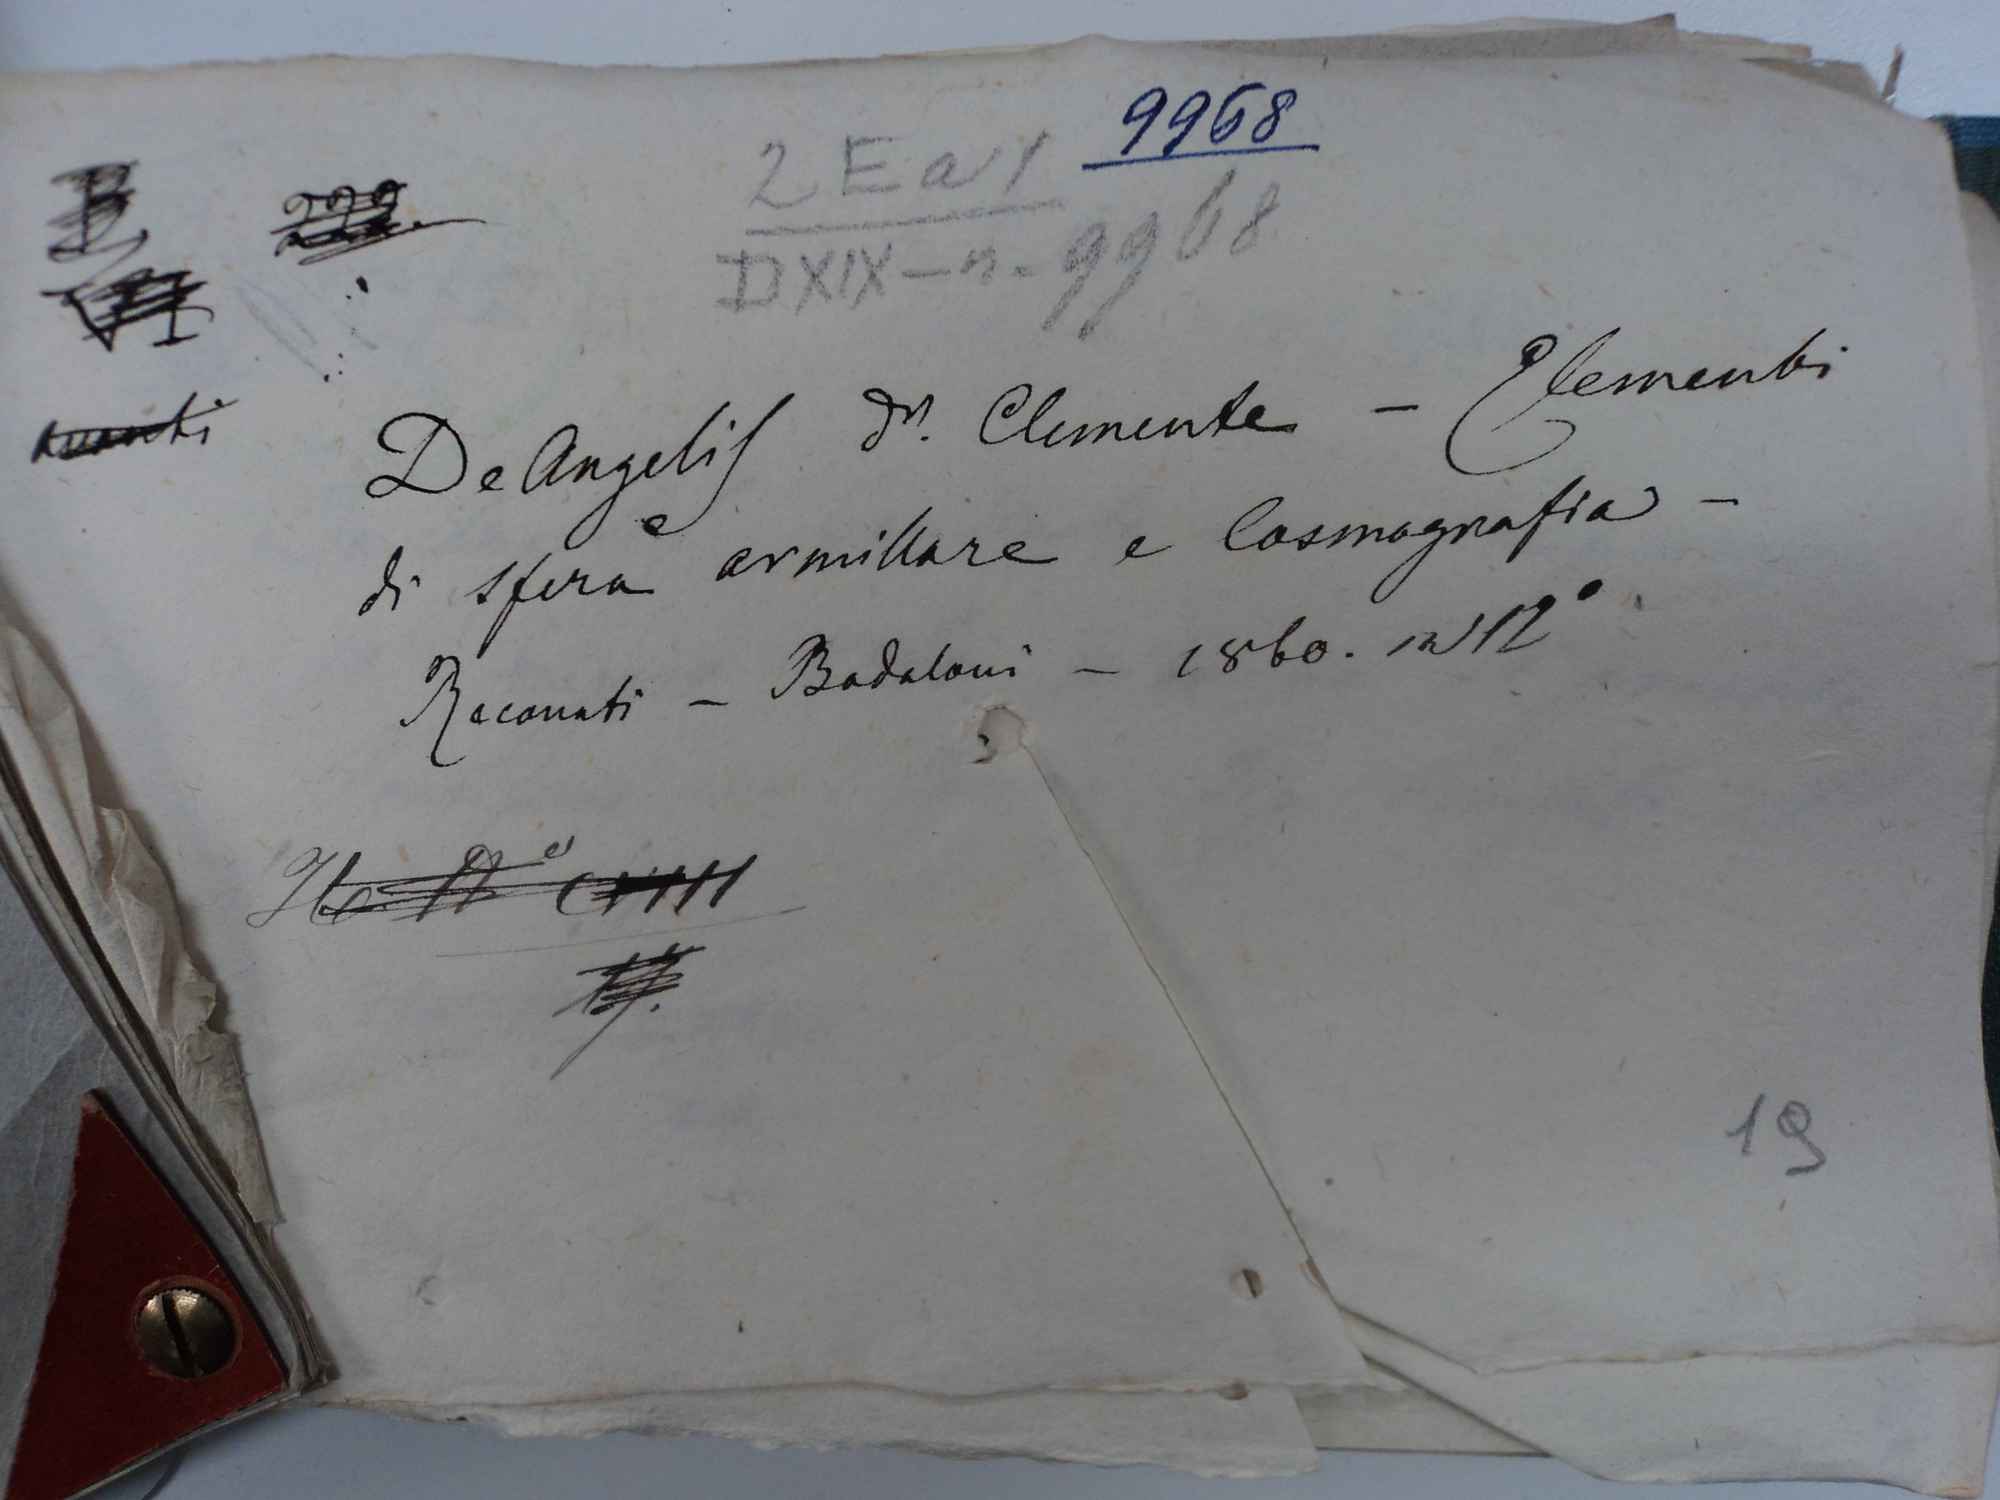 9968
2 E a 1
D XIX – n. 9968
De Angelis Dr. Clemente – Elementi
di sfera armillare e Cosmografia –
Recanati – Badaloni – 1860. in 12°
19